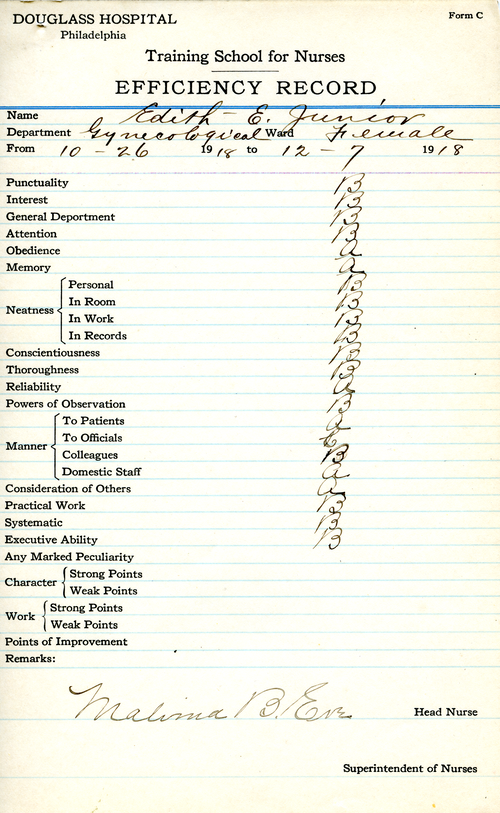 DOUGLASS HOSPITAL
Form C
Philadelphia
Training School for Nurses
EFFICIENCY RECORD
Name Edith E. Junior
Department Gynecological Ward Female
From 10-26 1918 to 12-7 1918
Punctuality B
Interest B
General Deportment B
Attention B
Obedience A
Memory A
Neatness
Personal B
In Room B
In Work B
In Records B
Conscientiousness B
Thoroughness B
Reliability A
Powers of Observation B
Manner
To Patients A
To Officials
Colleagues B
Domestic Staff A
Consideration of Others A
Practical Work B
Systematic B
Executive Ability B
Any Marked Peculiarity
Character
Strong Points
Weak Points
Work
Strong Points
Weak Points
Points of Improvement
Remarks:
B. Head Nurse
Superintendent of Nurses